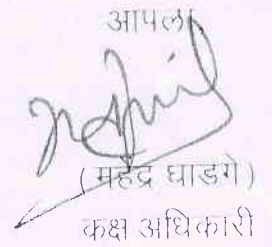 आपला,
(महेंद्र घाडगे)
कक्ष अधिकारी